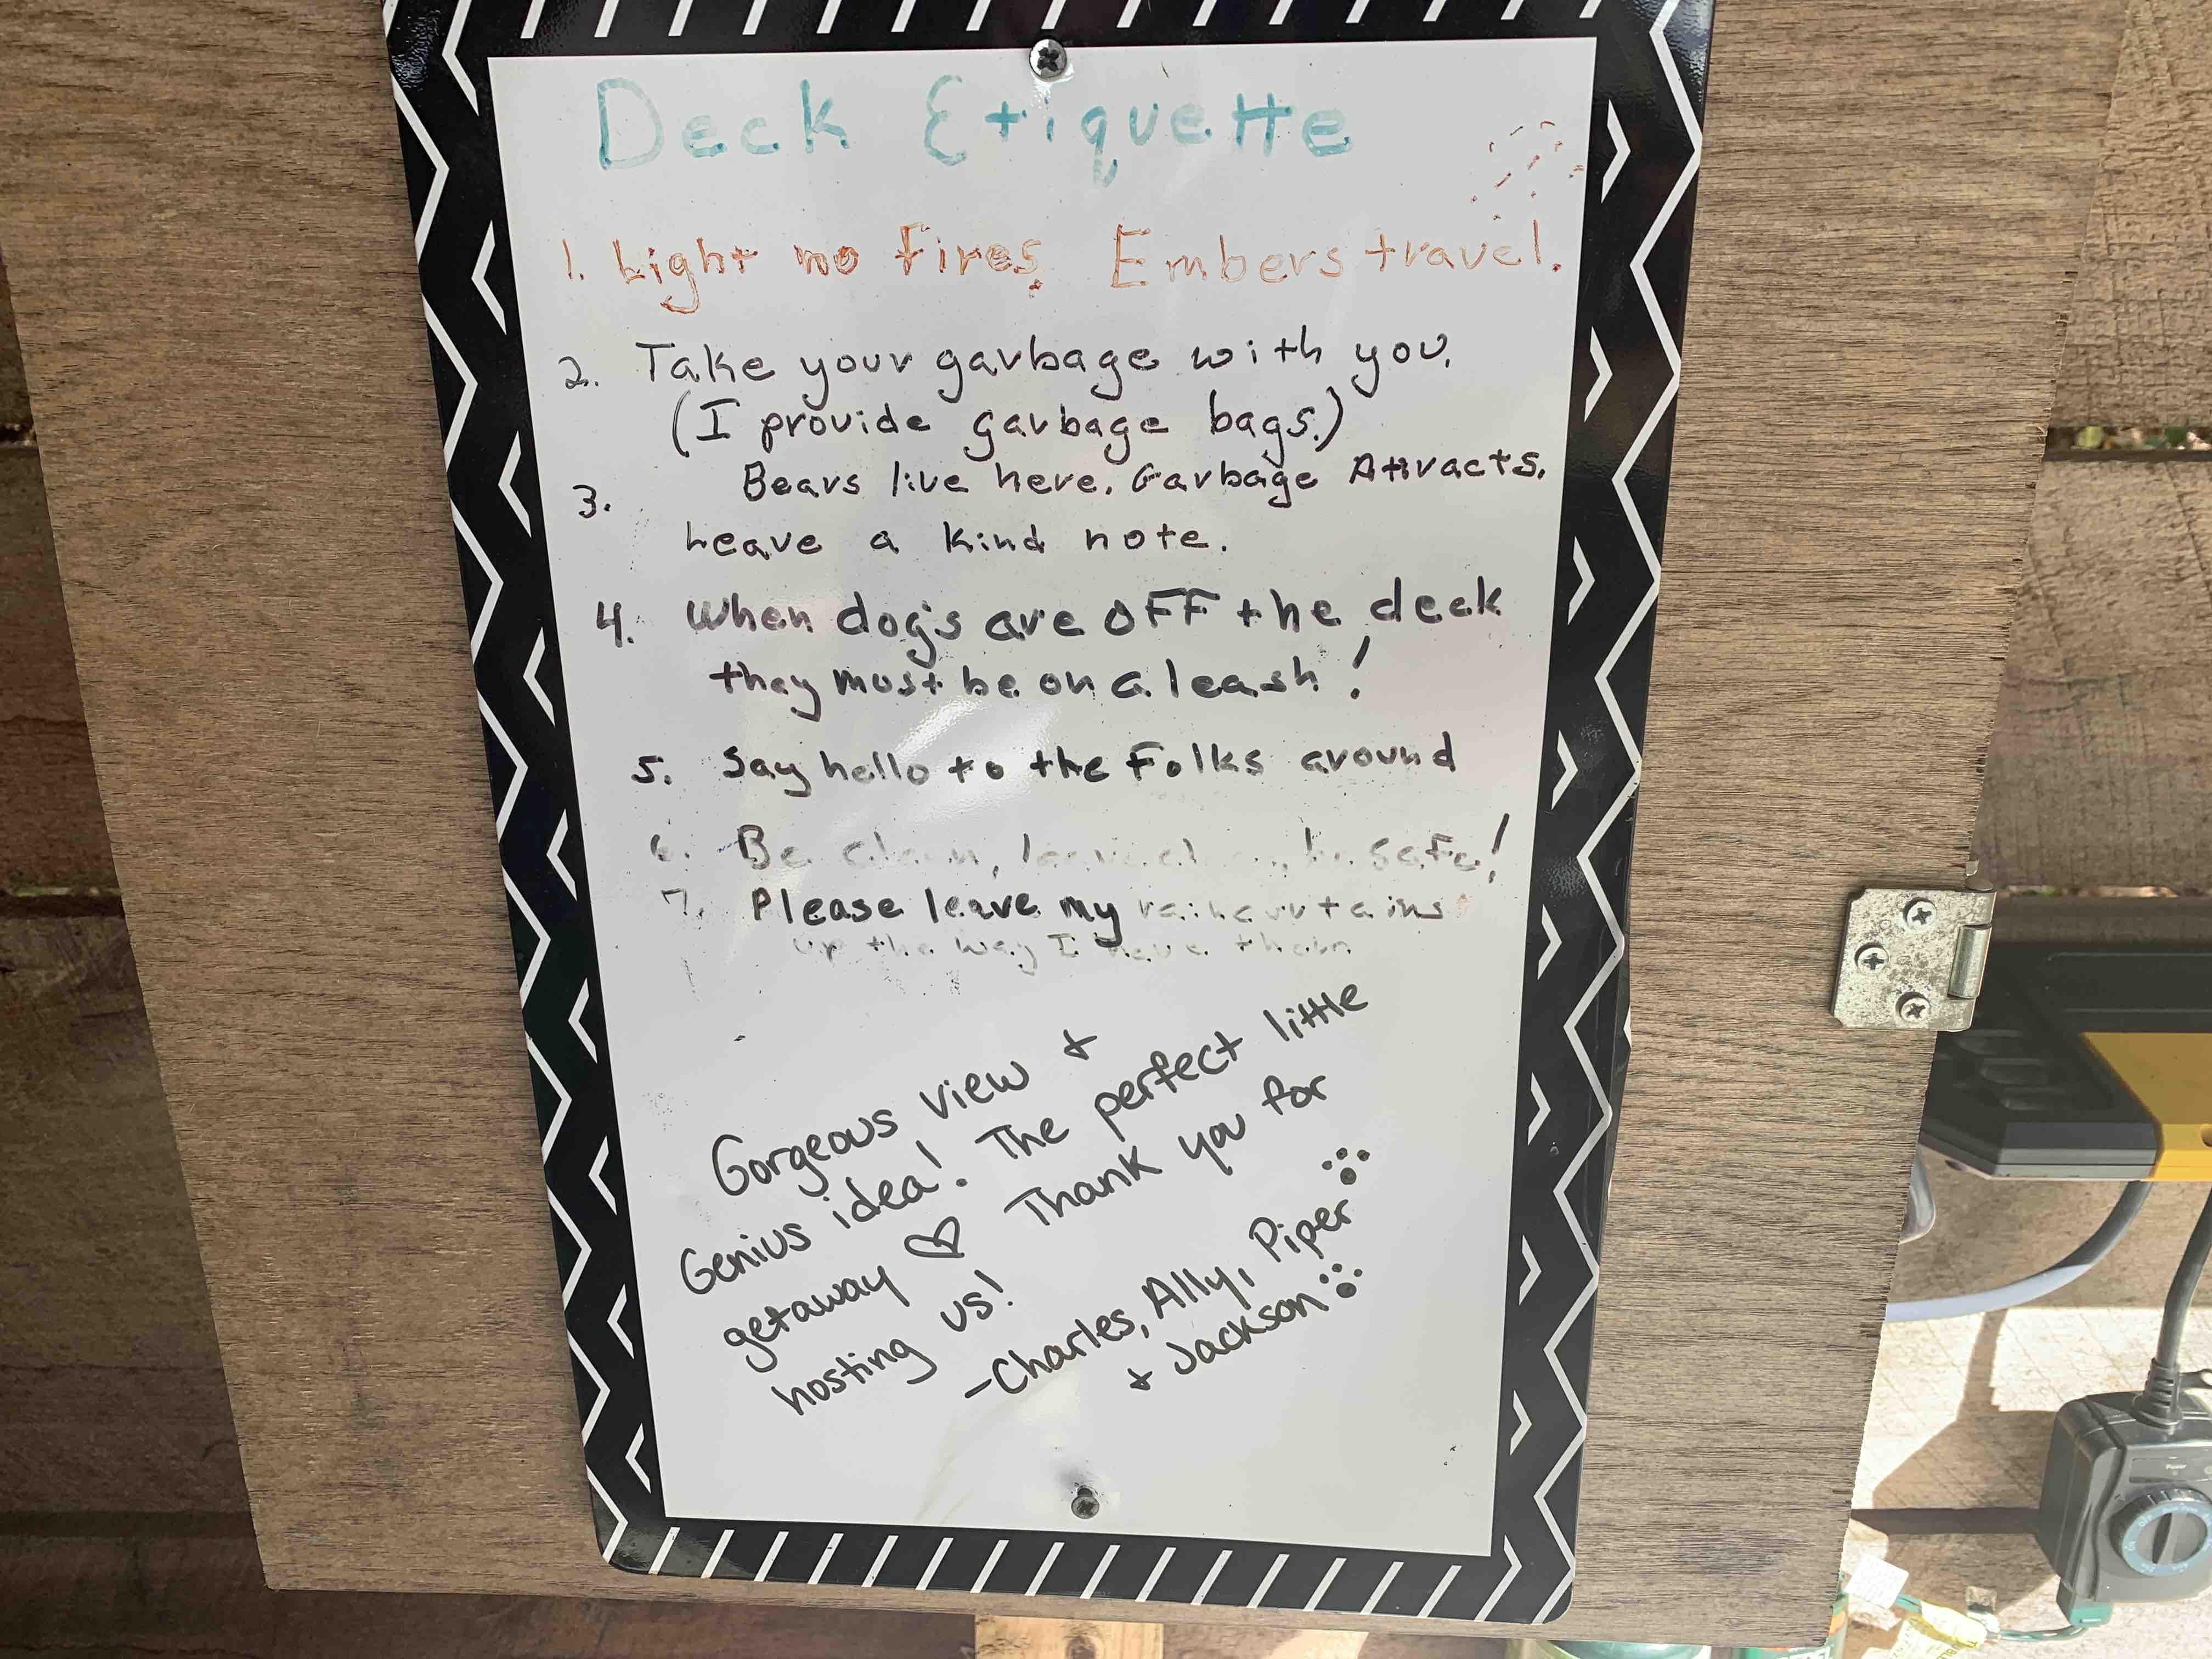 Deck Etiquette
1. Light no fires. Embers travel.
2. Take your garbage with you.
(I provide garbage bags.)
Bears live here. Garbage Attracts.
3.
Leave a kind note.
4. When dogs are OFF the deck
they must be on a leash!
5. Say hello to the Folks around
6. Be clean, leave clean, be safe!
7. Please leave my raincurtains
up the way I have them
Gorgeous view +
Genius idea! The perfect little
getaway ♡ Thank you for
hosting us!
-Charles, Ally, Piper
+ Jackson